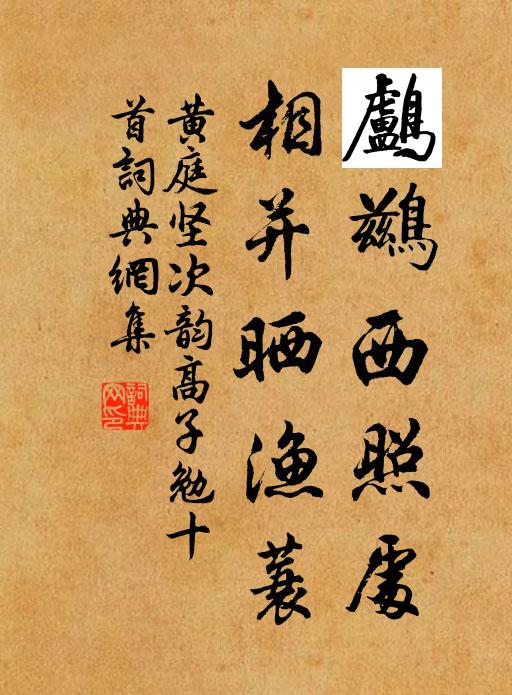 鸕鷀西照處
相并晒漁蓑
黄庭坚次韵高子勉十
首詞典網集
詞典網印